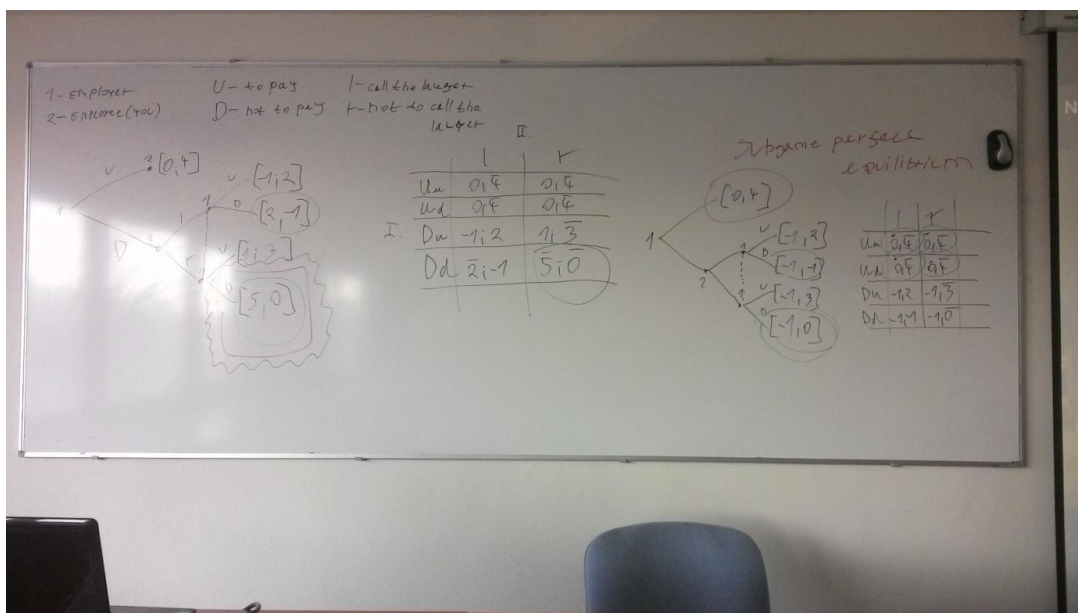 1 - EMPLOYER
2 - EMPLOYEE (YOU)
U - to pay
D - not to pay
l - call the lawyer
r - not to call the
lawyer
U
2 [0,4]
1
D
2
l
r
1
U [-1;2]
D [2,-1]
1
U [1;3]
D [5,0]
II.
l r
Uu 0,4̄ 0,4̄
Ud 0,4̄ 0,4̄
I. Du -1;2 1;3̄
Dd 2̄;-1 5̄;0̄
Subgame perfect
equilibrium
[0,4]
1
2
1
U [-1,2]
D [-1,-1]
1
U [-1,3]
D [-1,0]
l r
Uu 0,4̄ 0,4̄
Ud 0,4̄ 0,4̄
Du -1,2 -1,3̄
Dd -1,-1 -1,0
N